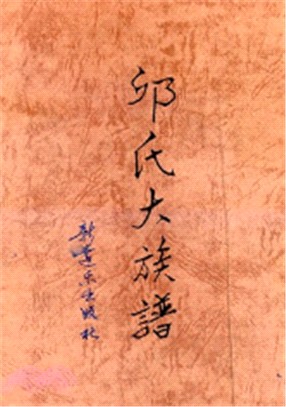 邱氏大族譜
新遠東出版社